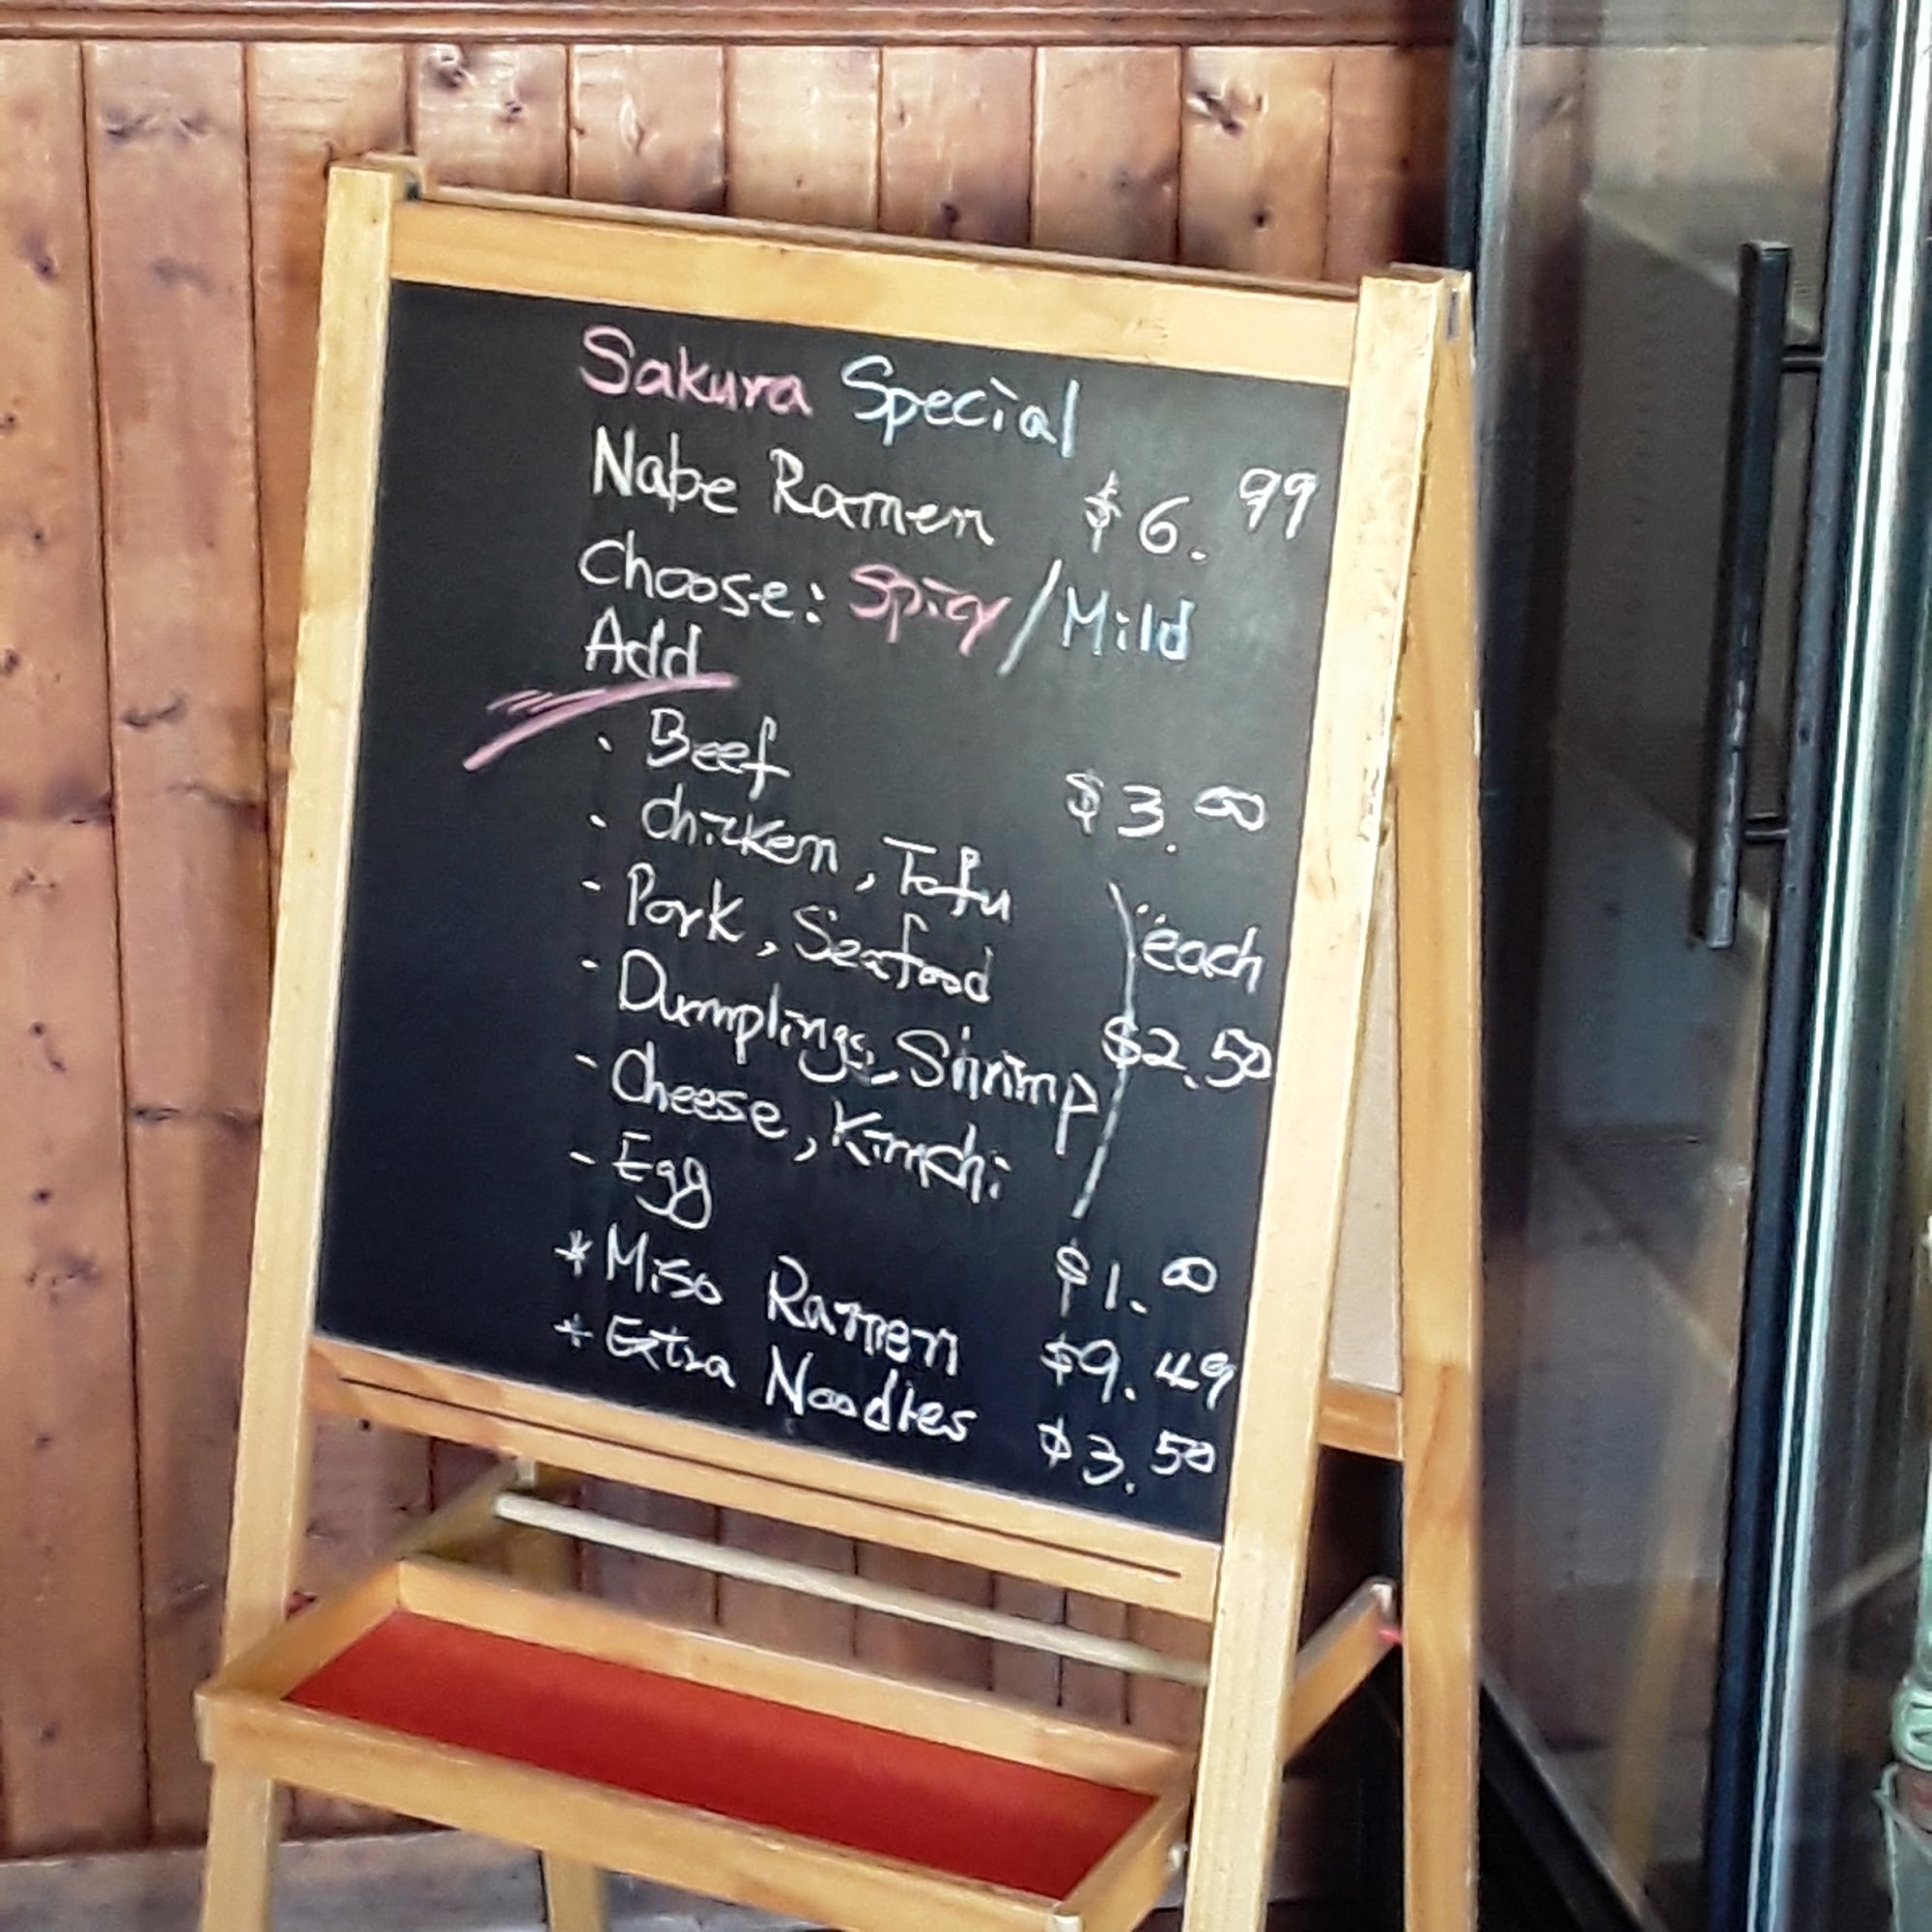 Sakura Special
Nabe Ramen $6.99
Choose: Spicy/Mild
Add
· Beef $3.00
· Chicken, Tofu
- Pork, Seafood each
- Dumplings, Shrimp $2.50
- Cheese, Kimchi
- Egg $1.00
* Miso Ramen $9.49
* Extra Noodles $3.50